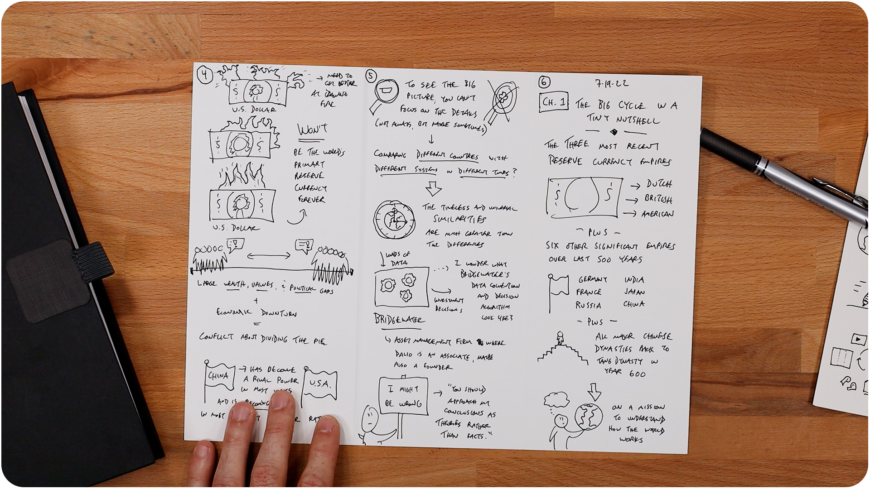 4
→ NEED TO
GET BETTER
AT DRAWING
FIRE
U.S. DOLLAR
WON'T
BE THE WORLD'S
PRIMARY
RESERVE
CURRENCY
FOREVER
U.S. DOLLAR
LARGE WEALTH, VALUES, & POLITICAL GAPS
+
ECONOMIC DOWNTURN
=
CONFLICT ABOUT DIVIDING THE PIE
CHINA
→ HAS BECOME
A RIVAL POWER
IN MOST WAYS
U.S.A.
AND IS BECOMING
IN MOST
5
TO SEE THE BIG
PICTURE, YOU CAN'T
FOCUS ON THE DETAILS
(NOT ALWAYS, BUT MORE SOMETIMES)
↓
COMPARING DIFFERENT COUNTRIES WITH
DIFFERENT SYSTEMS IN DIFFERENT TIMES?
THE TIMELESS AND UNIVERSAL
SIMILARITIES
ARE MUCH GREATER THAN
THE DIFFERENCES
↓ LOADS OF
DATA
I WONDER WHAT
BRIDGEWATER'S
DATA COLLECTION
AND DECISION
ALGORITHM
LOOK LIKE?
INVESTMENT
DECISIONS
BRIDGEWATER
↳ ASSET MANAGEMENT FIRM WHERE
DALIO IS AN ASSOCIATE, MAYBE
ALSO A FOUNDER
I MIGHT
BE WRONG
→ "YOU SHOULD
APPROACH MY
CONCLUSIONS AS
THEORIES RATHER
THAN FACTS."
6
7-19-22
CH. 1
THE BIG CYCLE IN A
TINY NUTSHELL
THE THREE MOST RECENT
RESERVE CURRENCY EMPIRES
→ DUTCH
→ BRITISH
→ AMERICAN
- PLUS -
SIX OTHER SIGNIFICANT EMPIRES
OVER LAST 500 YEARS
GERMANY INDIA
FRANCE JAPAN
RUSSIA CHINA
- PLUS -
ALL MAJOR CHINESE
DYNASTIES BACK TO
TANG DYNASTY IN
YEAR 600
ON A MISSION
TO UNDERSTAND
HOW THE WORLD
WORKS